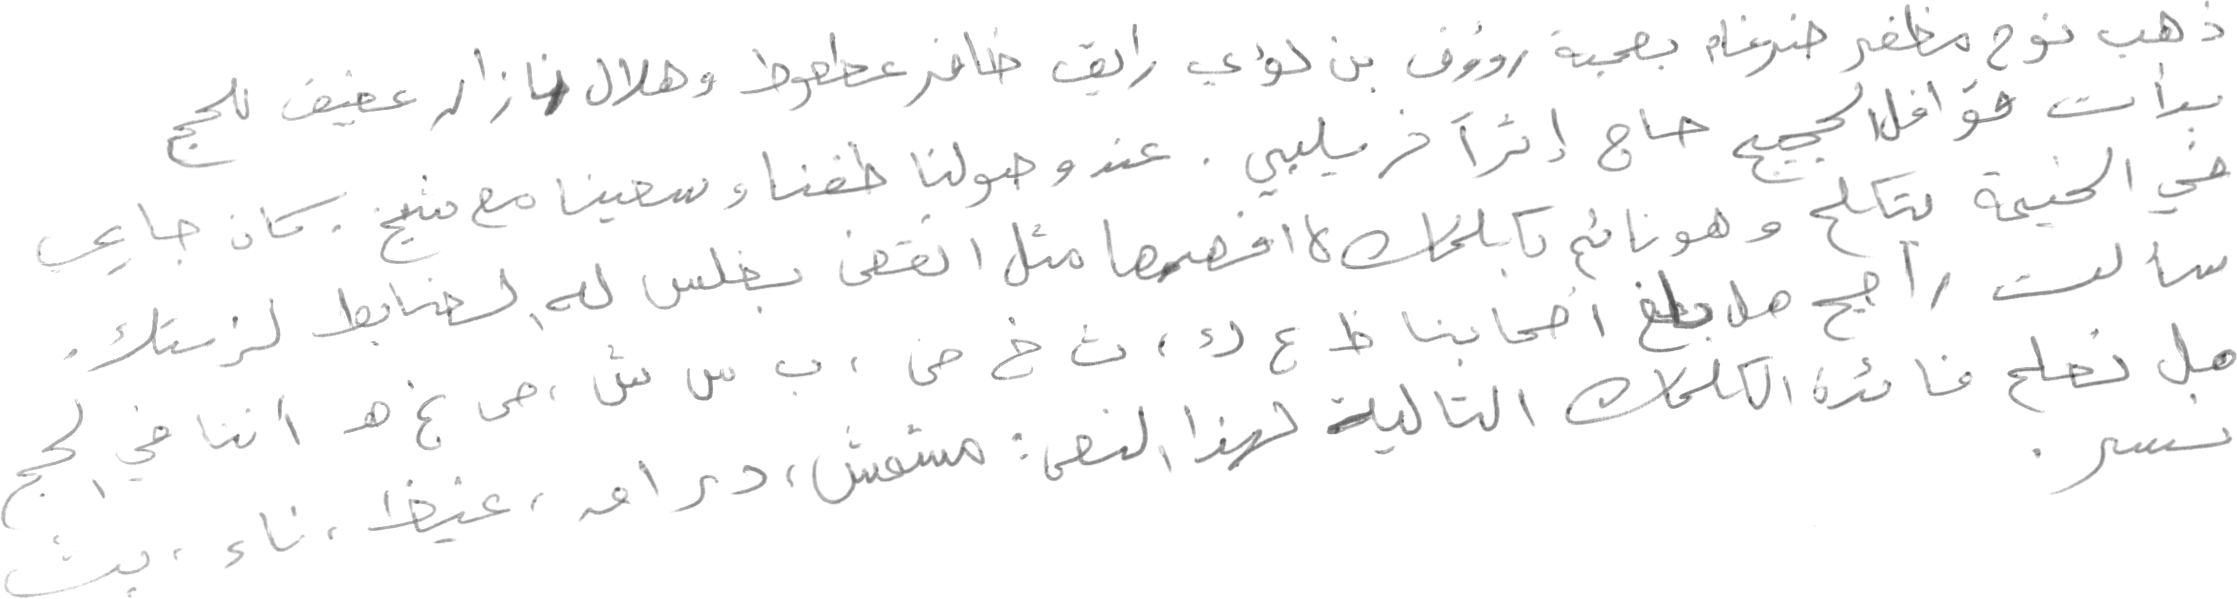 ذهب نوح مظفر ضرغام بصحبة رؤوف بن لؤي رايق ظافر عطعوط وهلال نازاله عفيف للحج
بدأت قوافل الحجيج حاج إثرآخر يلبي . عند وصولنا طفنا وسعينا مع شيخ . كان جاري
في الخيمة يتكلم وهو نائم بكلمات لا افهمها مثل انقض بغلس لله الضابط لزستك .
سألت راجح هل بلغ أصحابنا ظ ع ك ، ث خ ض ، ب س ش ، ص غ هـ اننا في الحج
هل تعلم فائدة الكلمات التالية لهذا النص : مشمش ، دراق ، غيظ ، ناء ، بث
نسر .